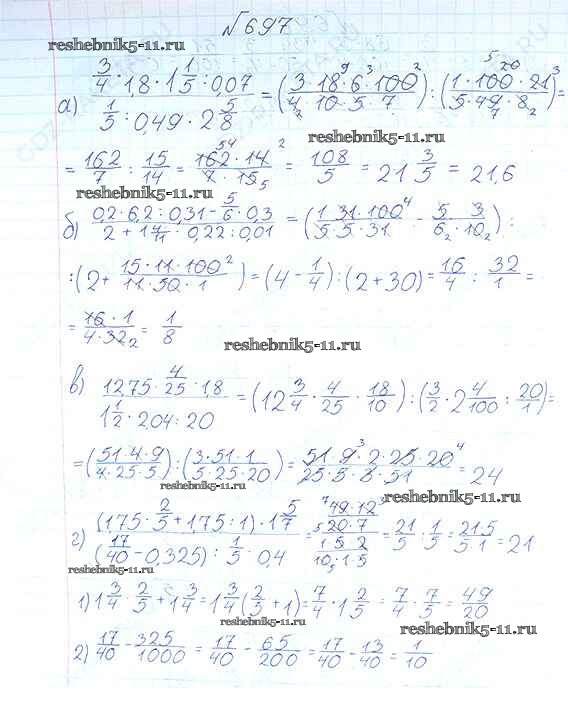 √697
reshebnik5-11.ru
а) (3/4 · 1,8 · 1 1/5 : 0,07) / (1/5 : 0,49 · 2 5/8) = (3·18·6·100 / 4·10·5·7) : (1·100·21 / 5·49·8) =
reshebnik5-11.ru
= 162/7 : 15/14 = 162·14 / 7·15 = 108/5 = 21 3/5 = 21,6
reshebnik5-11.ru
б) (0,2·6,2 : 0,31 - 5/6 · 0,3) / (2 + 1 4/11 · 0,22 : 0,01) = (1·31·100 / 5·5·31 - 5·3 / 6·10) :
: (2 + 15·11·100 / 11·50·1) = (4 - 1/4) : (2 + 30) = 16/4 : 32/1 =
= 16·1 / 4·32 = 1/8
reshebnik5-11.ru
в) (12,75 · 4/25 · 1,8) / (1 1/2 · 2,04 : 20) = (12 3/4 · 4/25 · 18/10) : (3/2 · 2 4/100 : 20/1) =
= (51·4·9 / 4·25·5) : (3·51·1 / 5·25·20) = 51·9·2·25·20 / 25·5·3·51 = 24
reshebnik5-11.ru
reshebnik5-11.ru
г) (1,75 · 2/5 + 1,75 : 1) · 1 5/7 / (17/40 - 0,325) : 1/5 · 0,4 = (49·12 / 20·7) / (1·5·2 / 10·1·5) = 21/5 : 1/5 = 21·5 / 5·1 = 21
reshebnik5-11.ru
1) 1 3/4 · 2/5 + 1 3/4 = 1 3/4 (2/5 + 1) = 7/4 · 1 2/5 = 7/4 · 7/5 = 49/20
reshebnik5-11.ru
2) 17/40 - 325/1000 = 17/40 - 65/200 = 17/40 - 13/40 = 1/10